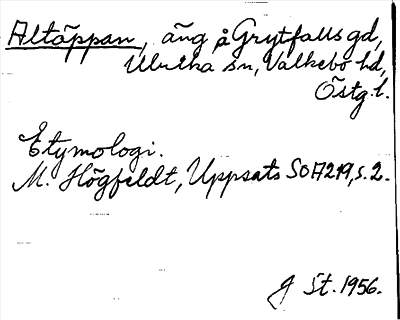 Altäppan, äng å Grytfalls gd,
Ulrika sn, Valkebo hd,
Östg. l.
Etymologi.
M. Högfeldt, Uppsats SOA 7219, s. 2.
St. 1956.